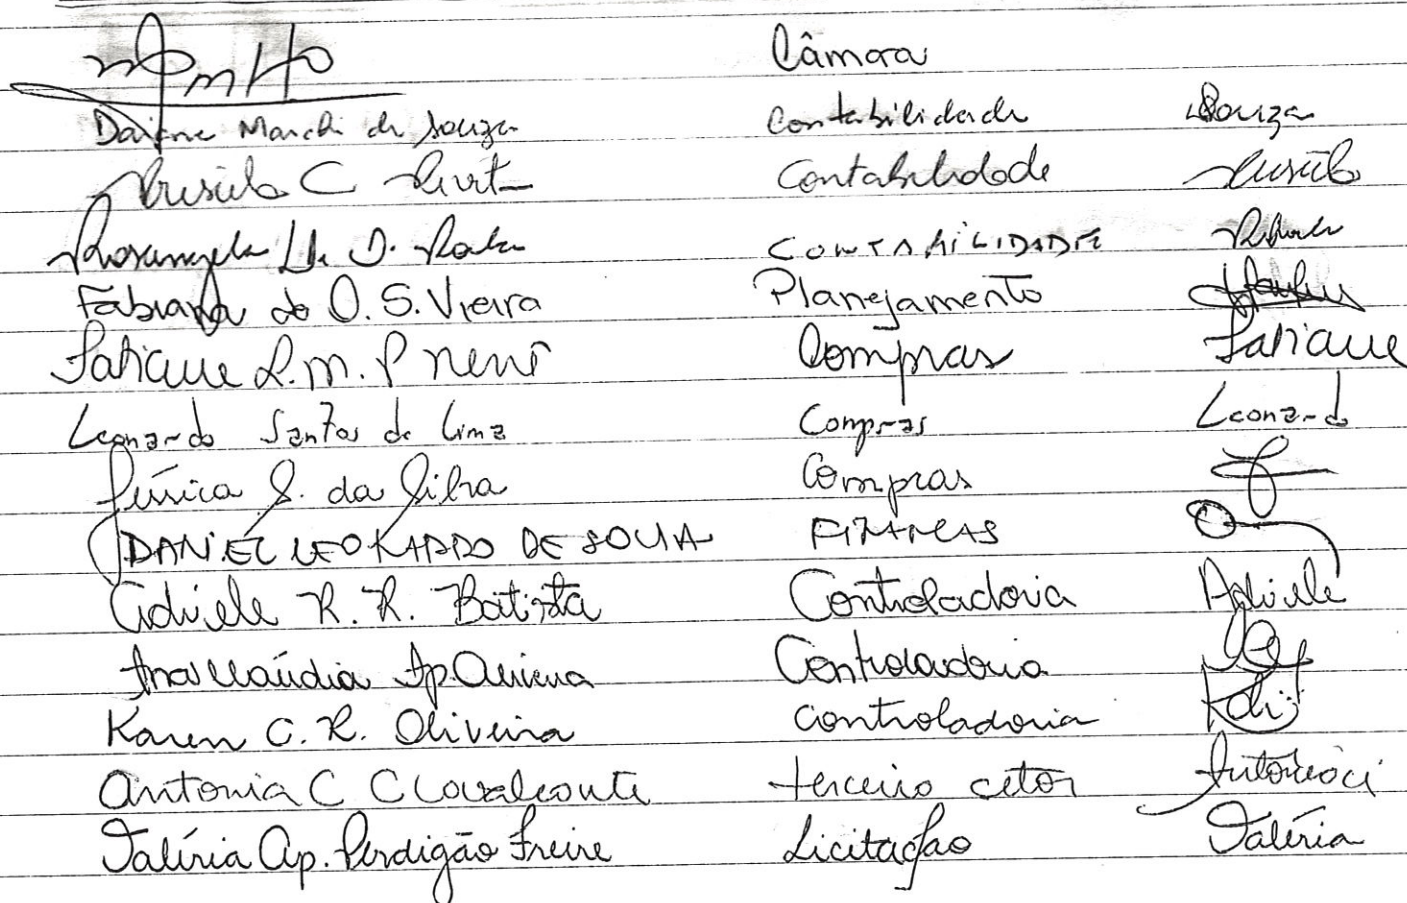 Câmara
Daiane Marchi de Souza Contabilidade Souza
C Contabilidade
Rosangela D. CONTABILIDADE
Fabiana do O. S. Vieira Planejamento
Tatiane R. M. P Neri Compras Tatiane
Leonardo Santos de Lima Compras Leonardo
Jéssica S. da Silva Compras
DANIEL LEONARDO DE SOUZA FINANCAS
Adriele R. R. Batista Controladoria Adriele
Ana Claúdia Ap. Oliveira Controladoria
Karen C. R. Oliveira Controladoria
Antonia C C Cavalcante terceiro cetor
Valéria Ap. Perdigão Freire Licitação Valéria